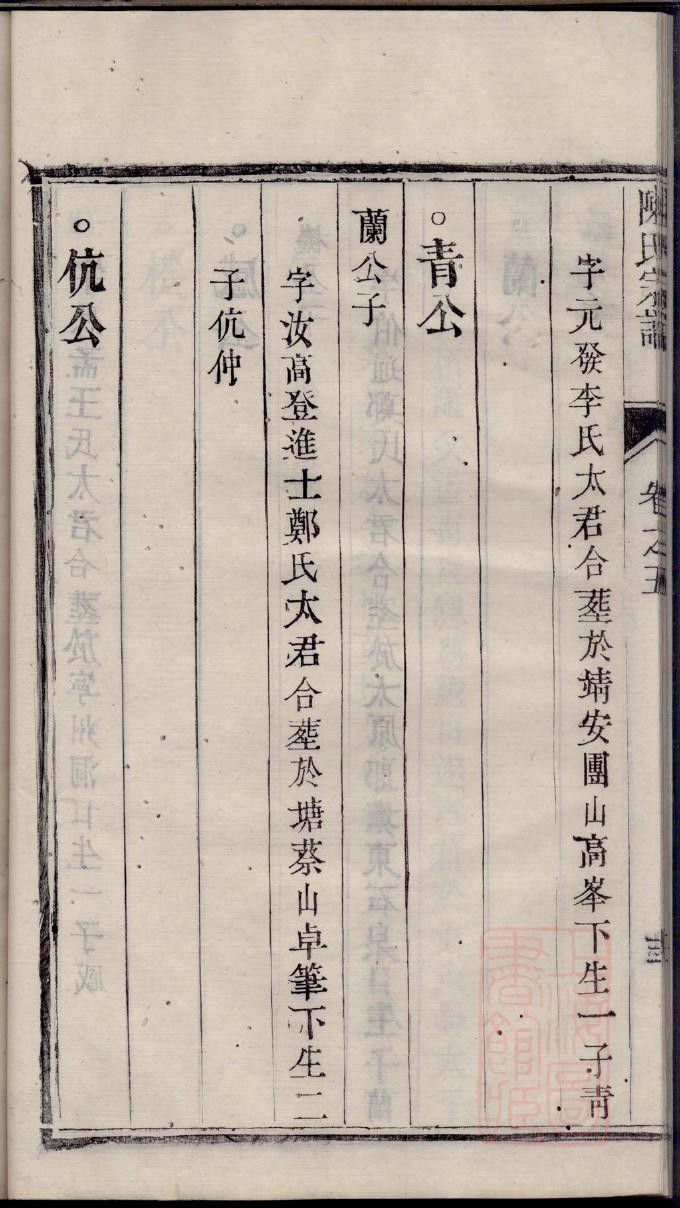 陳氏宗譜
卷之五
字元發李氏太君合塟於靖安團山高峯下生一子青
青公
蘭公子
字汝高登進士鄭氏太君合塟於塘蔡山卓筆下生二
子伉仲
伉公